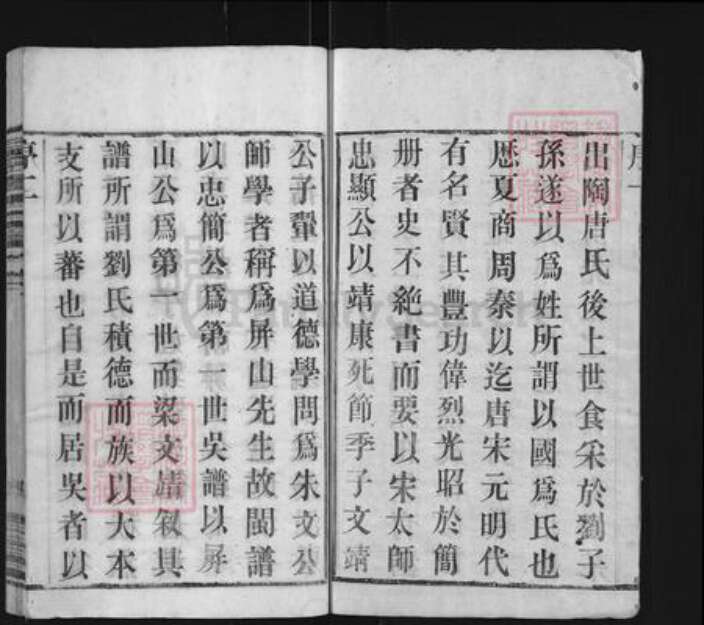 序一
出陶唐氏後上世食采於劉子
孫遂以爲姓所謂以國爲氏也
歷夏商周秦以迄唐宋元明代
有名賢其豐功偉烈光昭於簡
册者史不絕書而要以宋太師
忠顯公以靖康死節季子文靖
公子翬以道德學問爲朱文公
師學者稱爲屏山先生故閩譜
以忠簡公爲第一世吳譜以屏
山公爲第一世而梁文靖叙其
譜所謂劉氏積德而族以大本
支所以蕃也自是而居吳者以
序二